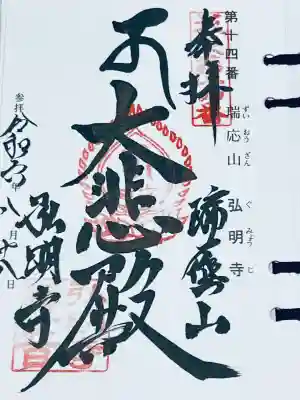 第十四番 瑞応山 弘明寺
ずい おう ざん ぐ みょう じ
奉拝
瑞應山
大悲殿
弘明寺
参拝 令和六年八月十八日